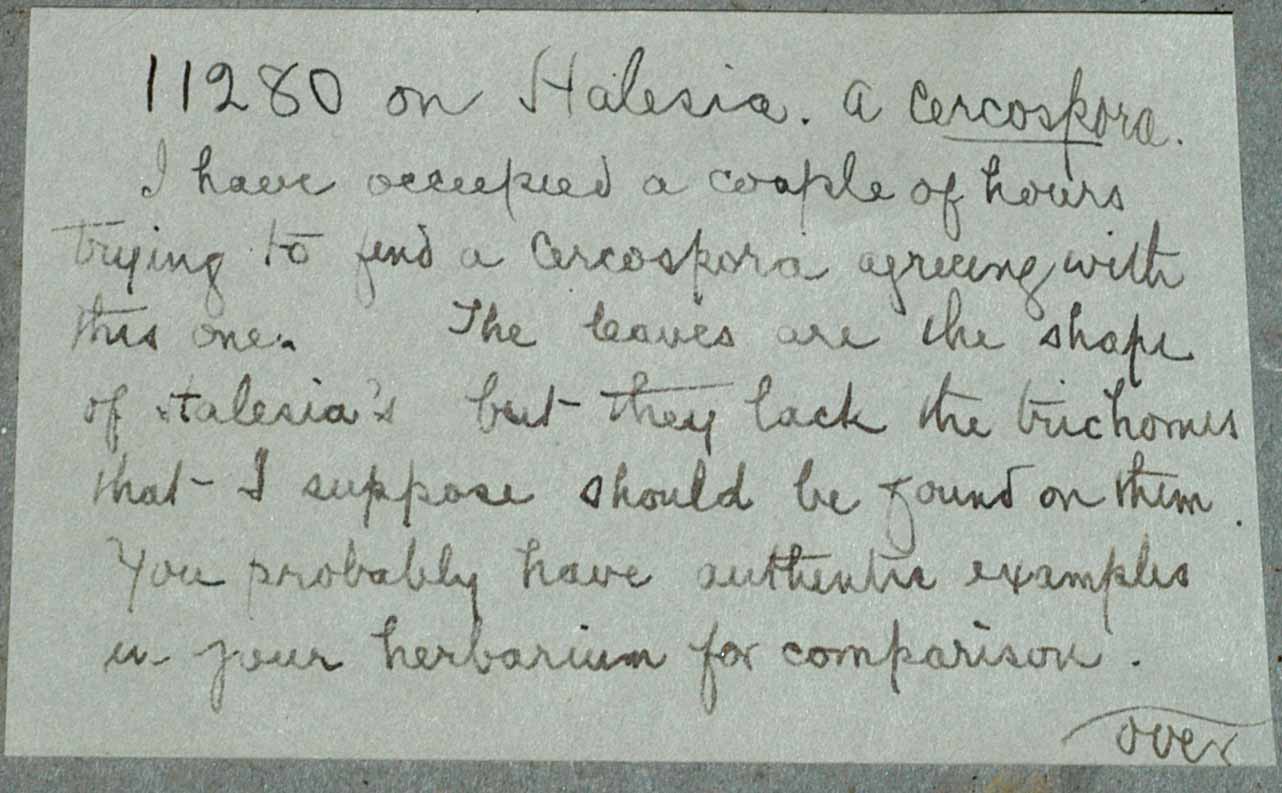 11280 on Halesia. A Cercospora.
I have occupied a couple of hours
trying to find a Cercospora agreeing with
this one. The leaves are the shape
of Halesia's but they lack the trichomes
that I suppose should be found on them.
You probably have authentic examples
in your herbarium for comparison.
over